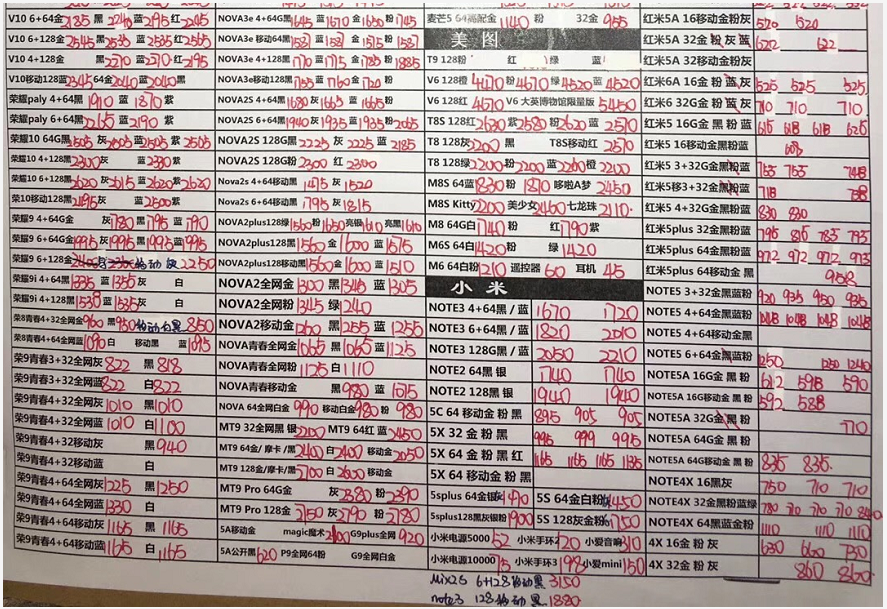 V10 6+64金2185 黑2240蓝2295 红2205
V10 6+128金2545黑2535 蓝2535红2565
V10 4+128金 黑2270 蓝2270红2195
V10移动128蓝2345 64金2040蓝2040黑
荣耀paly 4+64黑1910 蓝1870紫
荣耀paly 6+64黑2265蓝2190 紫
荣耀10 64G黑2505灰2505蓝2505紫2505
荣耀10 4+128黑2300灰 蓝2330紫
荣耀10 6+128黑2620灰2615蓝2620紫2620
荣10移动128黑2495灰 蓝2500紫
荣耀9 4+64G金 灰1780黑1795蓝1790
荣耀9 6+64G金1995灰1995黑1995蓝1995
荣耀9 6+128金 灰2250
荣耀9i 4+64黑1335蓝1355灰 白
荣耀9i 4+128黑1530蓝1535灰 白
荣8青春4+32全网金960黑950移动白黑850
荣8青春4+64全网金1090白 移动黑 蓝1095
荣9青春3+32全网灰822 黑818
荣9青春3+32全网蓝822 白822
荣9青春4+32全网灰1010黑1010
荣9青春4+32全网蓝1010白1100
荣9青春4+32移动灰 黑940
荣9青春4+32移动蓝 白
荣9青春4+64全网灰1225黑1250
荣9青春4+64全网蓝1330白
荣9青春4+64移动灰1165黑1165
荣9青春4+64移动蓝1165白1165
NOVA3e 4+64G黑1645蓝1670金1650粉1745
NOVA3e 移动64黑1587蓝1587金1575粉1587
NOVA3e 4+128黑1770蓝1775金1785粉1885
NOVA3e移动128黑1755蓝1760金1720粉
NOVA2S 4+64黑1680灰1665蓝1665粉
NOVA2S 6+64黑1940灰1935蓝1935粉2065
NOVA2S 128G黑2225灰2225蓝2185
NOVA2S 128G粉2300 红2300
Nova2s 4+64移动黑1475灰1520
Nova2s 6+64移动黑1795灰1815
NOVA2plus128绿1560粉1650亮银1610亮黑1610
NOVA2plus128黑1560金1600蓝1575
NOVA2plus128移动黑1560金1600蓝1510
NOVA2全网金1300黑1345蓝1305
NOVA2全网粉1345绿1240
NOVA2移动金1260黑1255蓝1255
NOVA青春全网金1065黑1065蓝1125
NOVA青春全网粉1125白1110
NOVA青春移动金 黑980蓝1015
NOVA 64全网白金990移动白金980粉980
MT9 32全网黑 银2200 MT9 64红 蓝2450
MT9 64金/摩卡/黑2400白2400移动金2050
MT9 128金/摩卡/黑2700白2600移动金
MT9 Pro 64G金 灰2380粉2390
MT9 Pro 128金2750灰2790粉2780
5A移动金 magic魔术2400G9plus全网920
5A公开黑620P9全网64粉 G9全网白金
麦芒5 64高配金1140粉 32金955
美图
T9 128粉 红 绿 蓝
V6 128橙4670粉4670绿4520蓝4520
V6 128红4670V6 大英博物馆限量版5450
T8S 128红2630紫2580粉2620蓝2570
T8 128灰2200黑 T8S移动红2570
T8 128绿2200粉2200蓝2200橙2200
M8S 64蓝1830粉1870哆啦A梦2450
M8S Kitty2200美少女2460七龙珠2110
M8 64G白1740粉 红1790紫
M6S 64白1420粉 绿1420
M6 64白粉1210遥控器60耳机45
小米
NOTE3 4+64黑/蓝 1670 1720
NOTE3 6+64黑/蓝 1820 2010
NOTE3 128G黑/蓝 2050 2210
NOTE2 64黑 银 1740 1740
NOTE2 128黑 银 1940 1940
5C 64 移动金 粉 黑 895 905 905
5X 32 金 粉 黑 995 999 995
5X 64 金 粉 黑 红 1165 1165 1165 1135
5X 64 移动金 粉 黑
5splus 64金银灰1490 5S 64金白粉灰1450
5splus128黑灰银粉1900 5S 128灰金粉1750
小米电源5000 52小米手环2 120小爱音响310
小米电源10000 75小米手环3 198小爱mini150
Mix2S 6+128移动黑3150
note3 128移动黑1880
红米5A 16移动金粉灰520 520
红米5A 32金 粉 灰 蓝622 622
红米5A 32移动金粉灰
红米6A 16金 粉 蓝 灰525 525 525
红米6 32G金 粉 蓝 灰710 710 710
红米5 16G金 黑 粉 蓝616 618 618 626
红米5 16移动金黑粉蓝 608
红米5 3+32G金黑粉蓝755 755 748
红米5移3+32金黑粉蓝718 738
红米5 4+32G金黑粉蓝830 830
红米5plus 32金黑粉蓝795 815 785 793
红米5plus 64金黑粉蓝972 972 972 973
红米5plus 64移动金 黑 958
NOTE5 3+32金黑蓝粉920 935 950 935
NOTE5 4+64金黑蓝粉1048 1048 1048 1048
NOTE5 4+64移动金黑
NOTE5 6+64金黑蓝粉1250 1250 1240
NOTE5A 16G金 黑 粉612 598 590
NOTE5A 16G移动金黑粉592 588
NOTE5A 32G金 黑 粉 770
NOTE5A 64G金 黑 粉
NOTE5A 64G移动金 黑 粉835 835
NOTE4X 16黑灰750 710 710
NOTE4X 32金黑粉蓝绿780 710 710 710 840
NOTE4X 64黑蓝金粉1110 1110 1110
4X 16金 粉 灰630 660 730
4X 32金 粉 灰 860 860